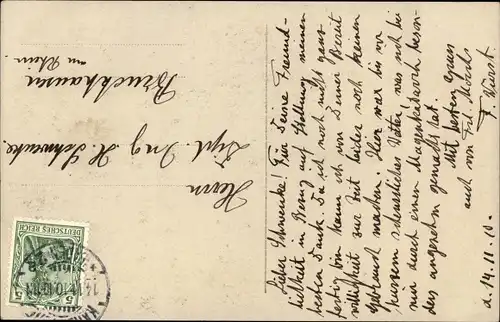 Herrn
Dipl. Ing. H. Schwencke,
Bruckhausen
am Rhein.
Lieber Schwencke! Für Deine Freund-
lichkeit in Bezug auf Stellung meinen
besten Dank. Da ich noch nicht ganz
fertig bin kann ich von Deiner Bereit
willigkeit zur Zeit leider noch keinen
Gebrauch machen. Hier war bis vor
einigem scheussliches Wetter! was noch bei
mir durch einen Magenkatarrh beson-
ders angenehm gemacht hat.
Mit besten Gruss
auch von
d. 14.11.10.
DEUTSCHES REICH
5 5